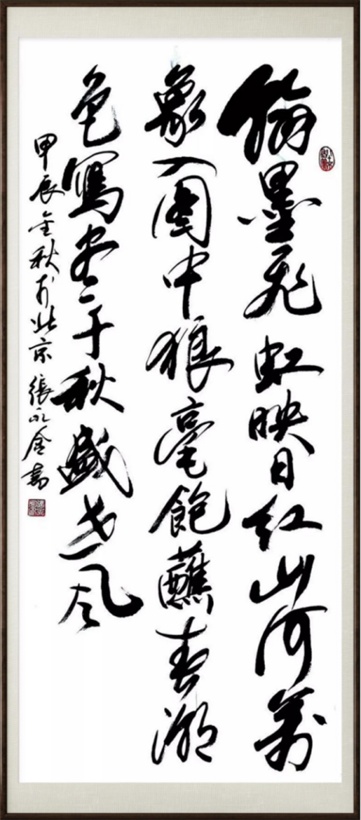 翰墨飞虹映日红山河万
象入图中狼毫饱蘸春潮
色写尽千秋盛世风
甲辰金秋于北京張永金書